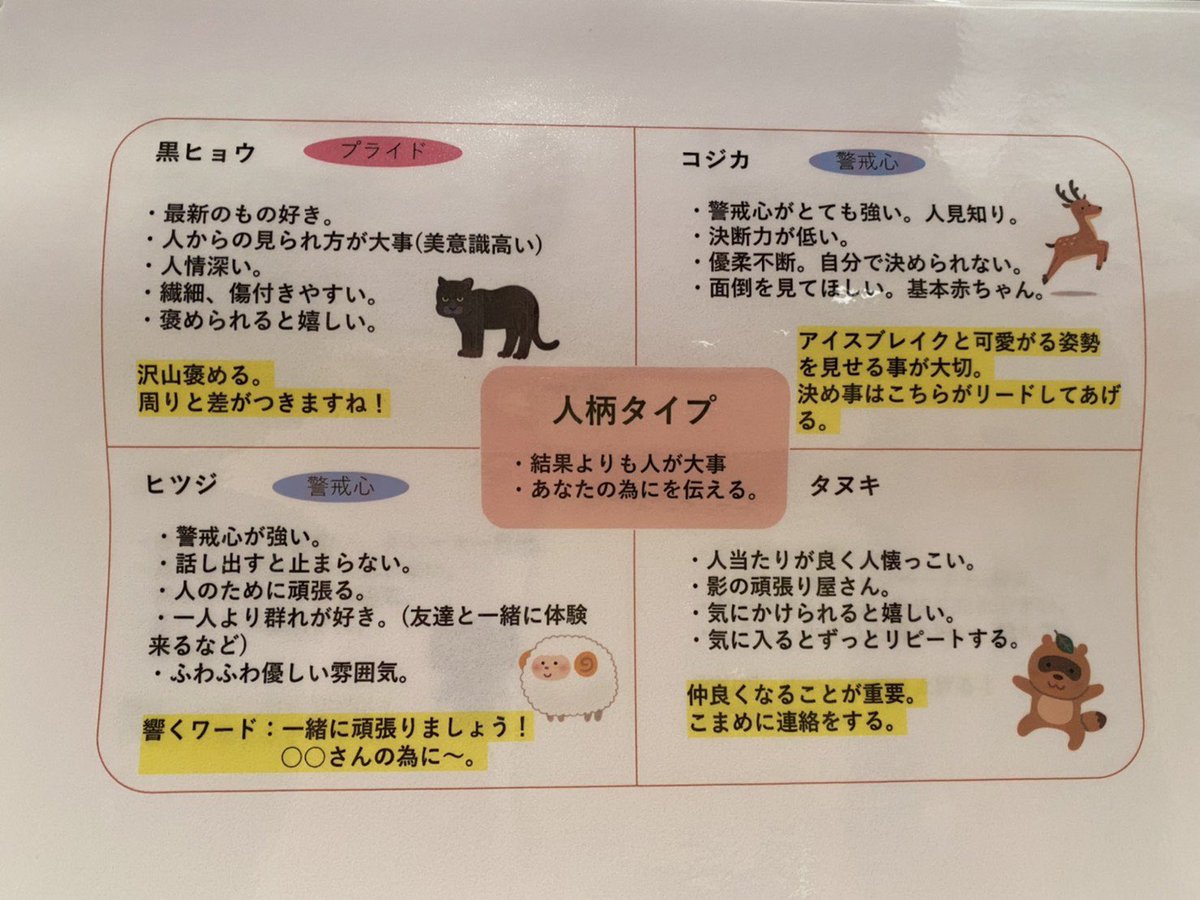 黒ヒョウ
プライド
・最新のもの好き。
・人からの見られ方が大事(美意識高い)
・人情深い。
・繊細、傷付きやすい。
・褒められると嬉しい。
沢山褒める。
周りと差がつきますね！
コジカ
警戒心
・警戒心がとても強い。人見知り。
・決断力が低い。
・優柔不断。自分で決められない。
・面倒を見てほしい。基本赤ちゃん。
アイスブレイクと可愛がる姿勢
を見せる事が大切。
決め事はこちらがリードしてあげ
る。
人柄タイプ
・結果よりも人が大事
・あなたの為にを伝える。
ヒツジ
警戒心
・警戒心が強い。
・話し出すと止まらない。
・人のために頑張る。
・一人より群れが好き。(友達と一緒に体験
来るなど)
・ふわふわ優しい雰囲気。
響くワード：一緒に頑張りましょう！
〇〇さんの為に〜。
タヌキ
・人当たりが良く人懐っこい。
・影の頑張り屋さん。
・気にかけられると嬉しい。
・気に入るとずっとリピートする。
仲良くなることが重要。
こまめに連絡をする。